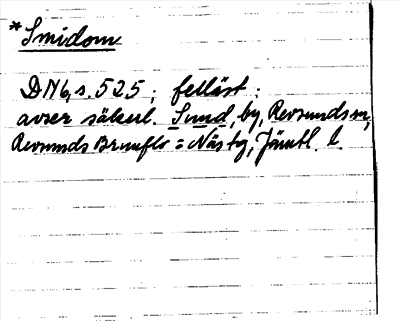 *Smidom
DN 6, s. 525; felläst;
avser säkerl. Sund, by, Revsunds sn,
Revsunds Brunflo o Näs tg, Jämtl. l.